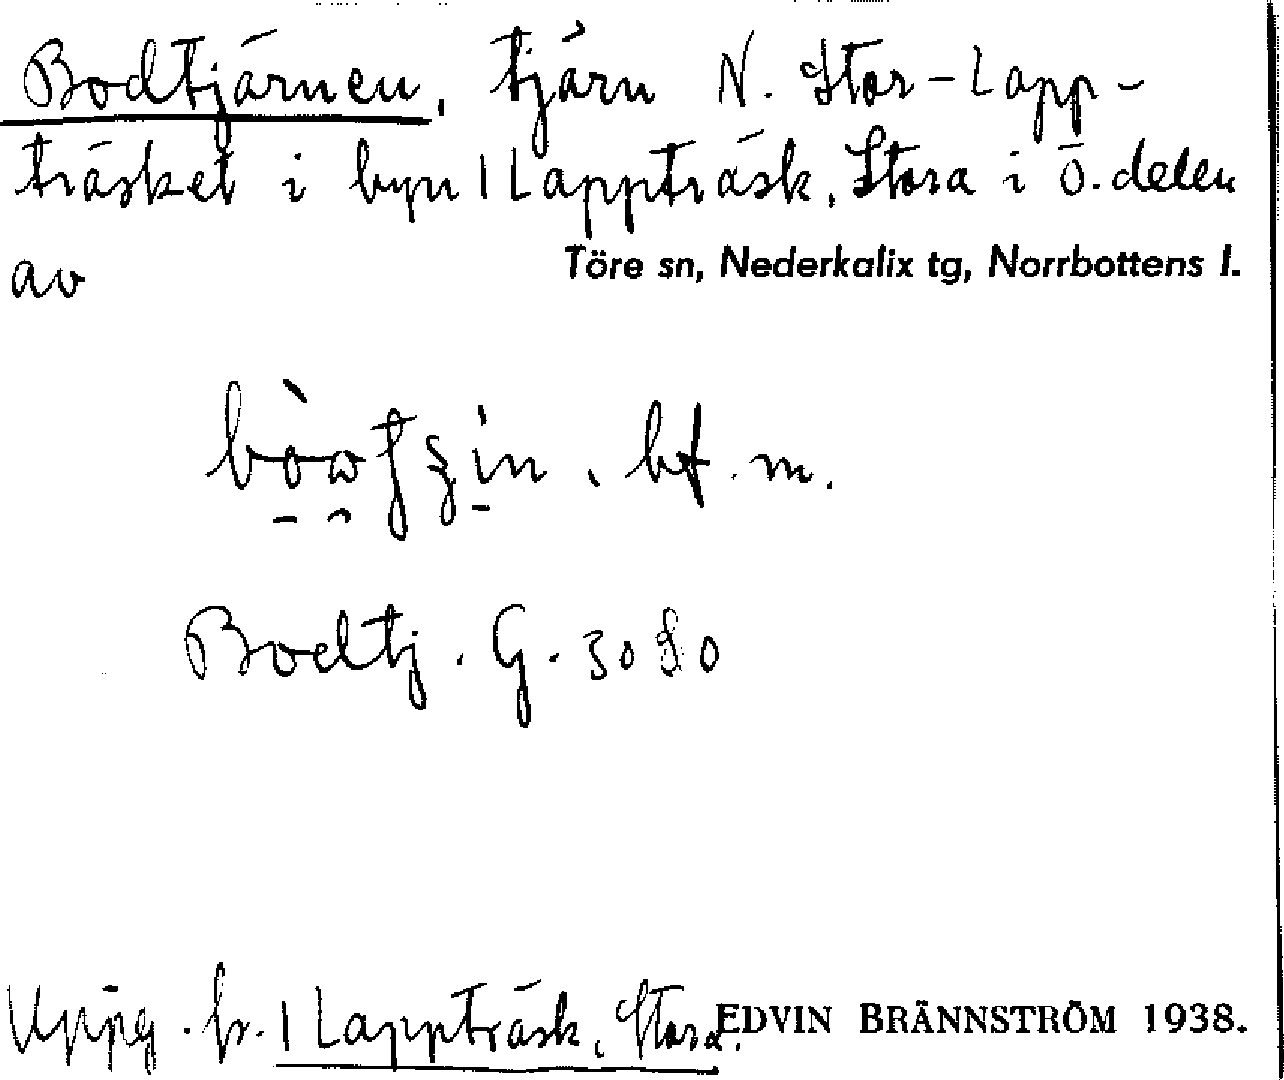 Bodtjärnen, tjärn N. Stor-Lapp-
träsket i byn 1 Lappträsk, Stora i ö. delen
av Töre sn, Nederkalix tg, Norrbottens l.
bf. m.
Bodtj. G. 3080
Uppg. fr. 1 Lappträsk, Stora. EDVIN BRÄNNSTRÖM 1938.